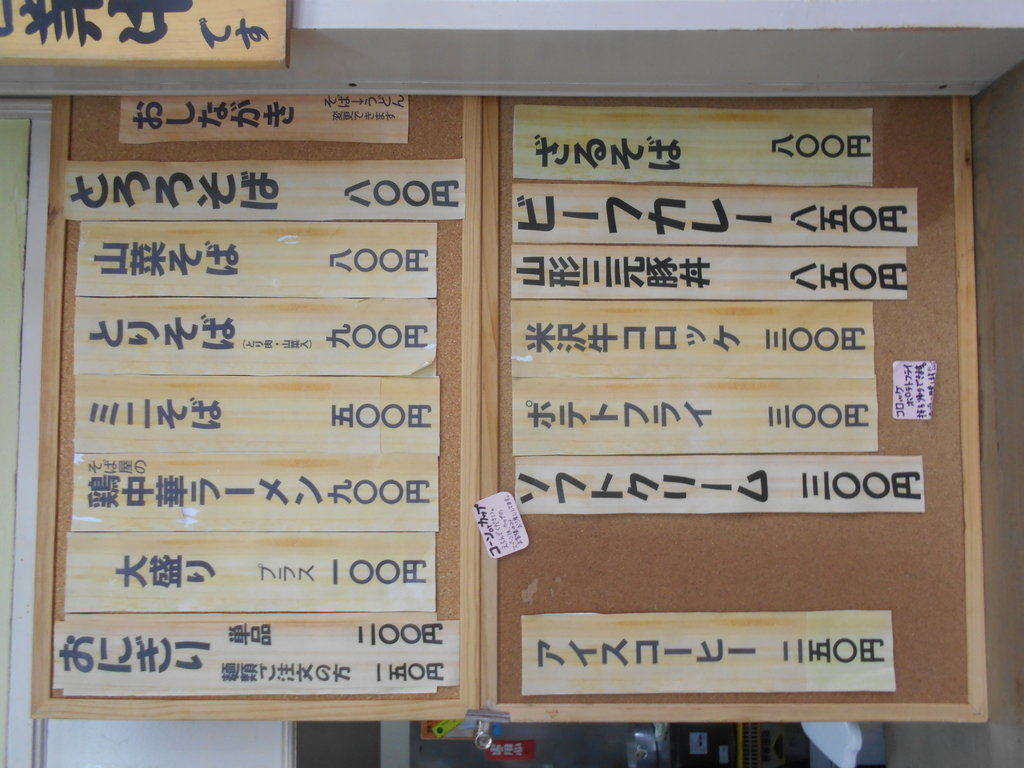 です
おしながき
そば⇔うどん
変更できます
とろろそば 八〇〇円
山菜そば 八〇〇円
とりそば (とり肉・山菜入) 九〇〇円
ミニそば 五〇〇円
そば屋の
鶏中華ラーメン 九〇〇円
大盛り プラス 一〇〇円
おにぎり
単品 二〇〇円
麺類ご注文の方 一五〇円
ざるそば 八〇〇円
ビーフカレー 八五〇円
山形三元豚丼 八五〇円
米沢牛コロッケ 三〇〇円
ポテトフライ 三〇〇円
ソフトクリーム 三〇〇円
アイスコーヒー 二五〇円
コロッケ
ポテトフライ
コーンorカップ